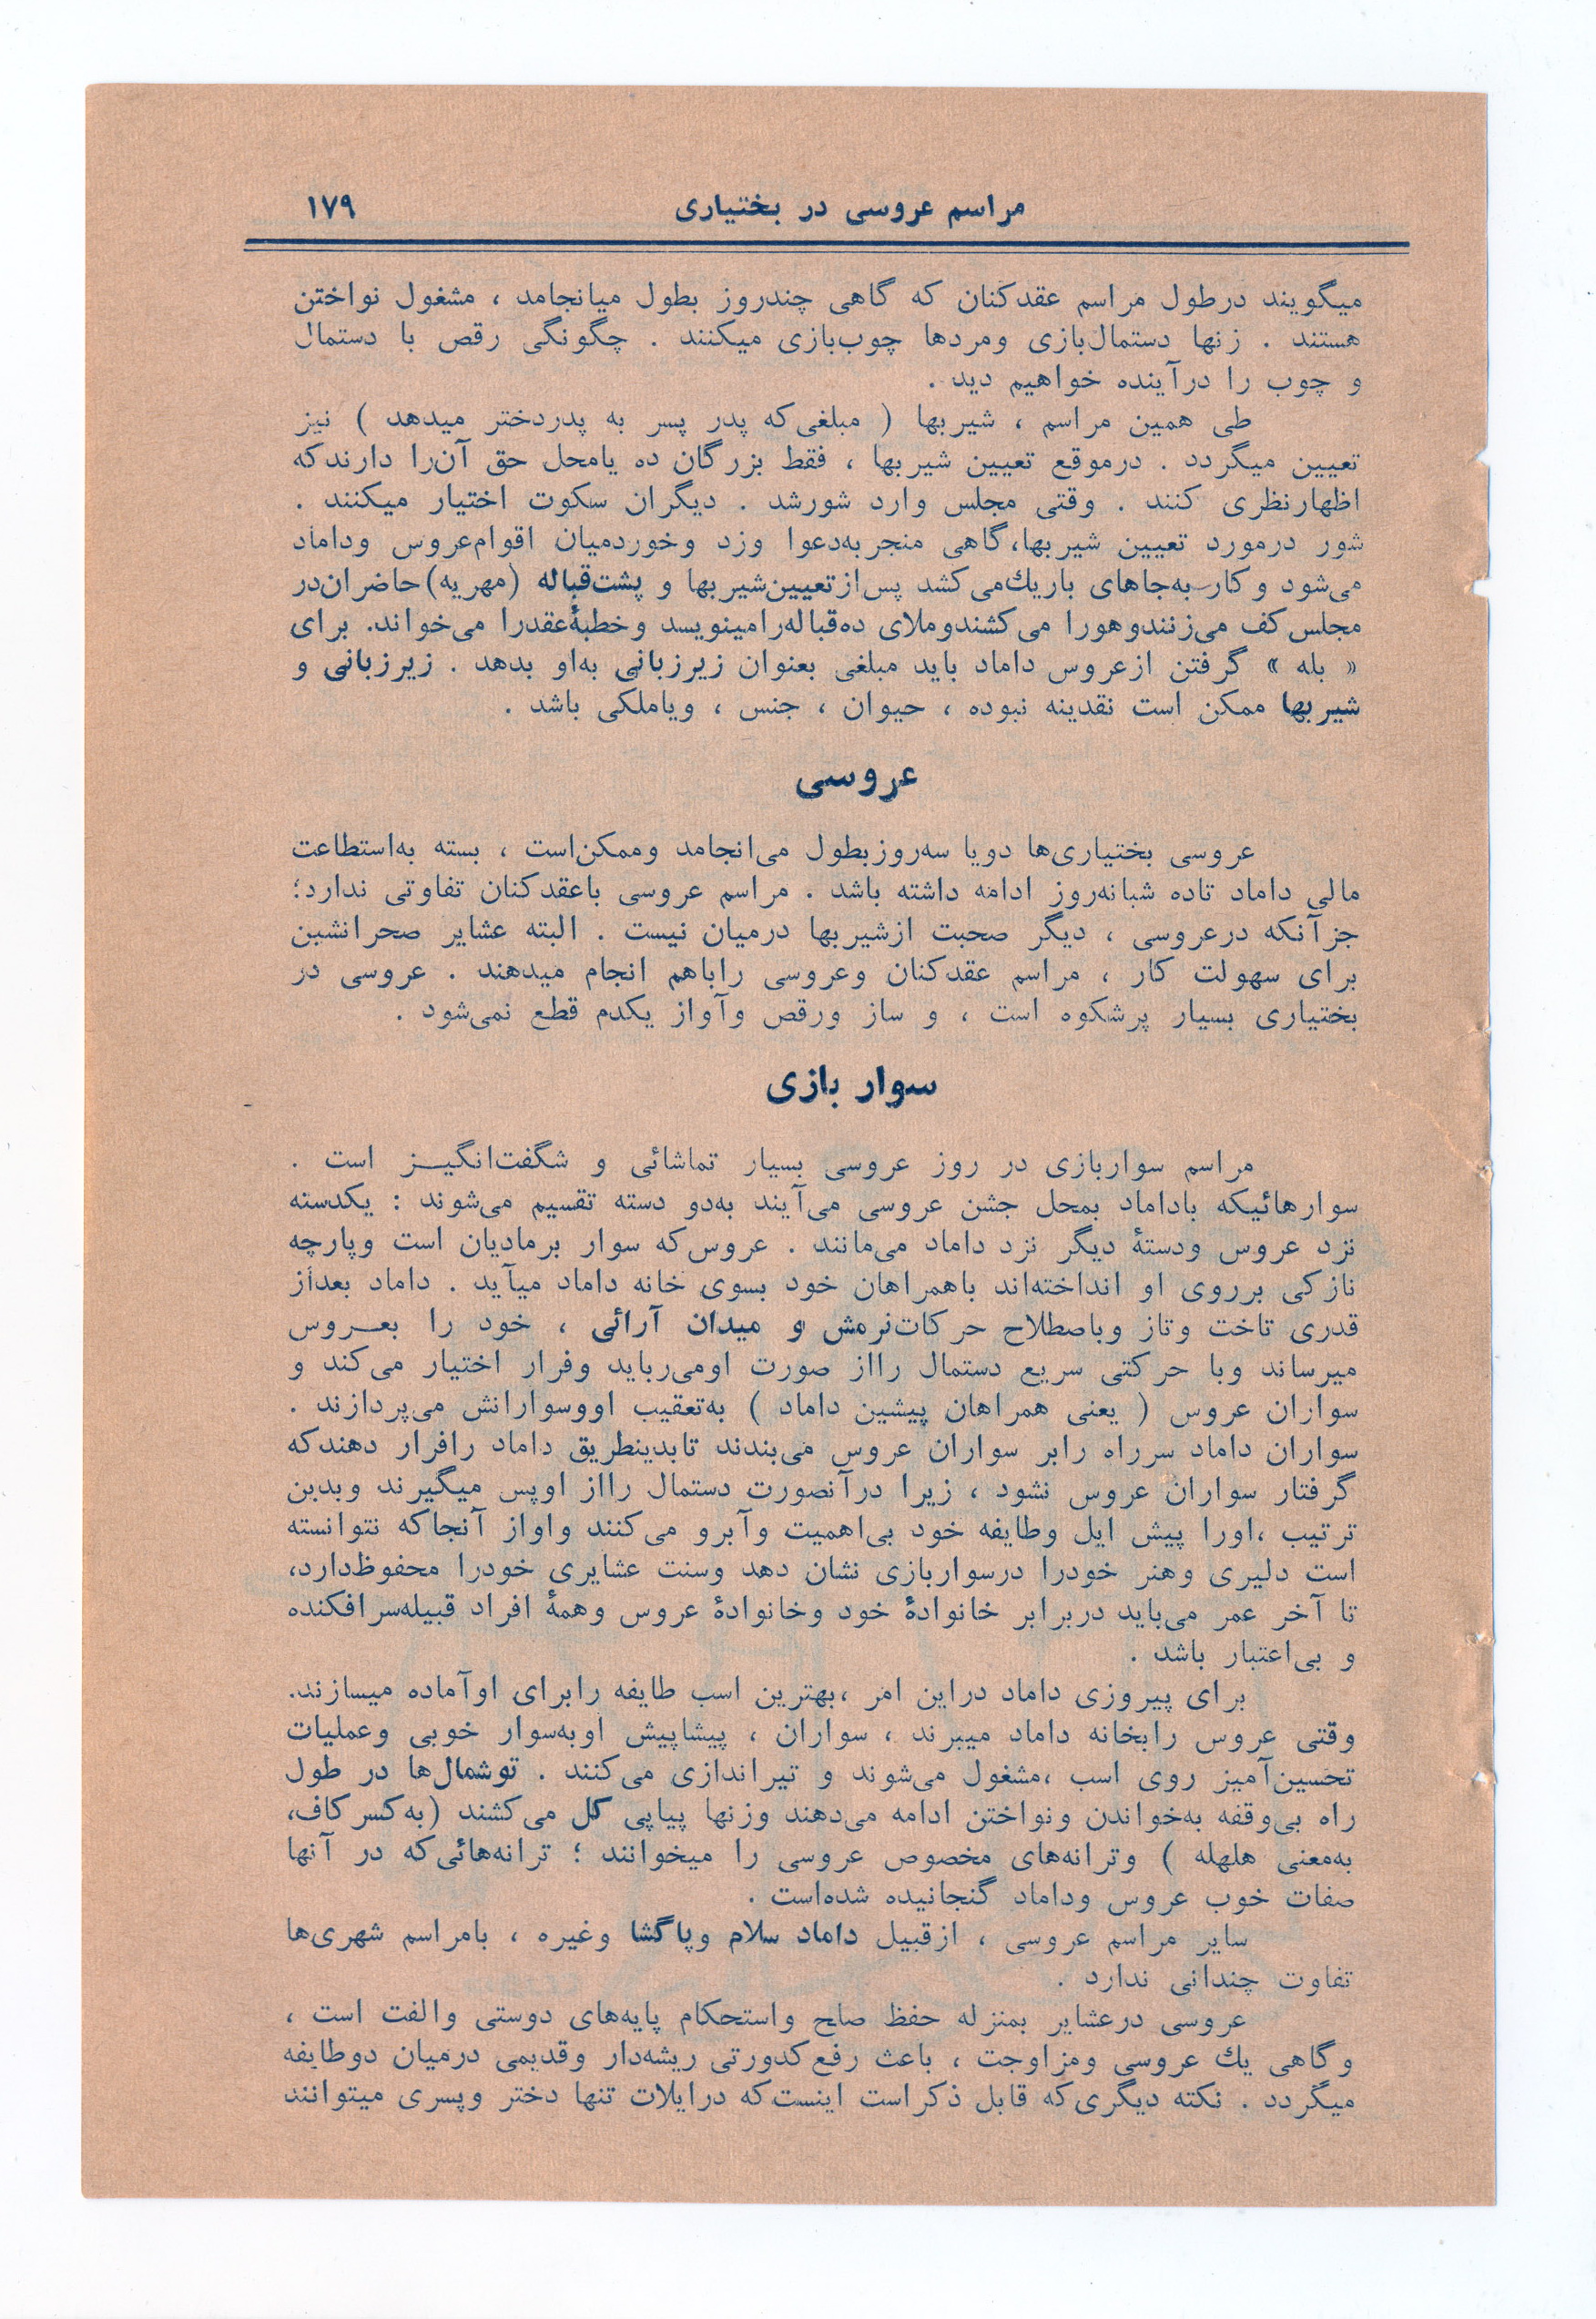 مراسم عروسی در بختیاری ۱۷۹
میگویند درطول مراسم عقدکنان که گاهی چندروز بطول میانجامد ، مشغول نواختن
هستند . زنها دستمال‌بازی ومردها چوب‌بازی میکنند . چگونگی رقص با دستمال
و چوب را درآینده خواهیم دید .
طی همین مراسم ، شیربها ( مبلغی‌که پدر پسر به پدردختر میدهد ) نیز
تعیین میگردد . درموقع تعیین شیربها ، فقط بزرگان ده یامحل حق آن‌را دارندکه
اظهارنظری کنند . وقتی مجلس وارد شورشد . دیگران سکوت اختیار میکنند .
شور درمورد تعیین شیربها،گاهی منجربه‌دعوا وزد وخوردمیان اقوام‌عروس وداماد
می‌شود وکار‌به‌جاهای باریك‌می‌کشد پس‌ازتعیین‌شیربها و پشت‌قباله (مهریه)حاضران‌در
مجلس‌کف می‌زنندوهورا می‌کشندوملای ده‌قباله‌رامینویسد وخطبهٔ‌عقدرا می‌خواند. برای
« بله » گرفتن ازعروس داماد باید مبلغی بعنوان زیرزبانی به‌او بدهد . زیرزبانی و
شیربها ممکن است نقدینه نبوده ، حیوان ، جنس ، ویاملکی باشد .
عروسی
عروسی بختیاری‌ها دویا سه‌روزبطول می‌انجامد وممکن‌است ، بسته به‌استطاعت
مالی داماد تاده شبانه‌روز ادامه داشته باشد . مراسم عروسی باعقدکنان تفاوتی ندارد؛
جزآنکه درعروسی ، دیگر صحبت ازشیربها درمیان نیست . البته عشایر صحرانشین
برای سهولت کار ، مراسم عقدکنان وعروسی راباهم انجام میدهند . عروسی در
بختیاری بسیار پرشکوه است ، و ساز ورقص وآواز یکدم قطع نمی‌شود .
سوار بازی
مراسم سواربازی در روز عروسی بسیار تماشائی و شگفت‌انگیــز است .
سوارهائیکه باداماد بمحل جشن عروسی می‌آیند به‌دو دسته تقسیم می‌شوند : یکدسته
نزد عروس ودستهٔ دیگر نزد داماد می‌مانند . عروس‌که سوار برمادیان است وپارچه
نازکی برروی او انداخته‌اند باهمراهان خود بسوی خانه داماد میآید . داماد بعداز
قدری تاخت وتاز وباصطلاح حرکات‌نرمش و میدان آرائی ، خود را بعــروس
میرساند وبا حرکتی سریع دستمال رااز صورت اومی‌رباید وفرار اختیار می‌کند و
سواران عروس ( یعنی همراهان پیشین داماد ) به‌تعقیب اووسوارانش می‌پردازند .
سواران داماد سرراه رابر سواران عروس می‌بندند تابدینطریق داماد رافرار دهندکه
گرفتار سواران عروس نشود ، زیرا درآنصورت دستمال رااز اوپس میگیرند وبدین
ترتیب ،اورا پیش ایل وطایفه خود بی‌اهمیت وآبرو می‌کنند واواز آنجاکه نتوانسته
است دلیری وهنر خودرا درسواربازی نشان دهد وسنت عشایری خودرا محفوظدارد،
تا آخر عمر می‌باید دربرابر خانوادهٔ خود وخانوادهٔ عروس وهمهٔ افراد قبیله‌سرافکنده
و بی‌اعتبار باشد .
برای پیروزی داماد دراین امر ،بهترین اسب طایفه رابرای اوآماده میسازند.
وقتی عروس رابخانه داماد میبرند ، سواران ، پیشاپیش اوبه‌سوار خوبی وعملیات
تحسین‌آمیز روی اسب ،مشغول می‌شوند و تیراندازی می‌کنند . توشمال‌ها در طول
راه بی‌وقفه به‌خواندن ونواختن ادامه می‌دهند وزنها پیاپی کل می‌کشند (به‌کسرکاف،
به‌معنی هلهله ) وترانه‌های مخصوص عروسی را میخوانند ؛ ترانه‌هائی‌که در آنها
صفات خوب عروس وداماد گنجانیده شده‌است .
سایر مراسم عروسی ، ازقبیل داماد سلام وپاگشا وغیره ، بامراسم شهری‌ها
تفاوت چندانی ندارد .
عروسی درعشایر بمنزله حفظ صلح واستحکام پایه‌های دوستی والفت است ،
وگاهی یك عروسی ومزاوجت ، باعث رفع‌کدورتی ریشه‌دار وقدیمی درمیان دوطایفه
میگردد . نکته دیگری‌که قابل ذکراست اینست‌که درایلات تنها دختر وپسری میتوانند